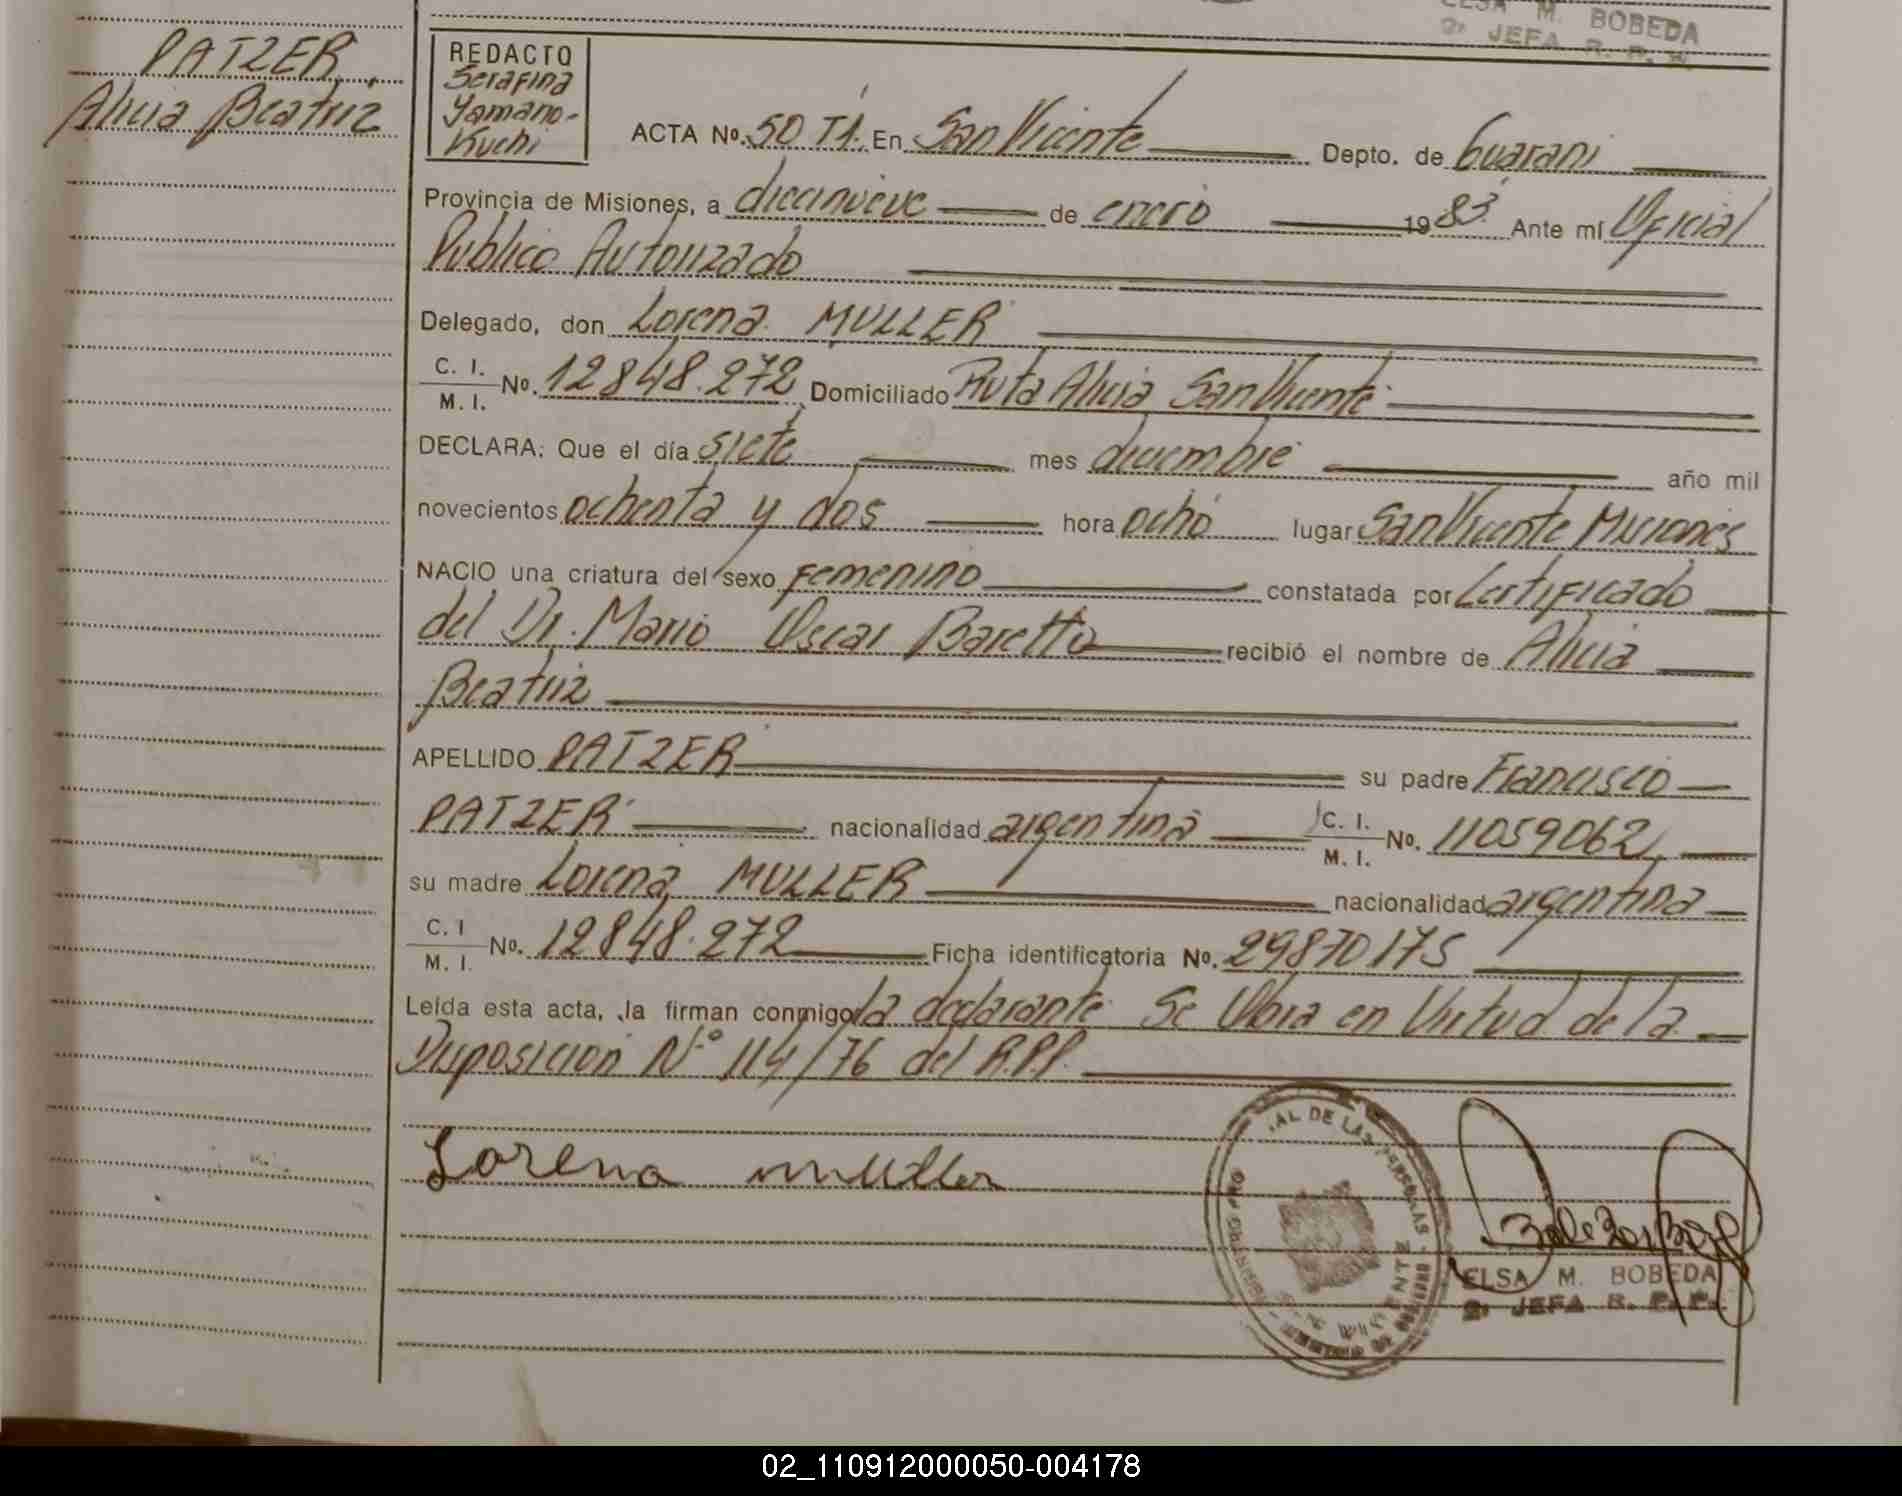 ELSA M. BOBEDA
2ª JEFA R. P. P.
PATZER,
Alicia Beatriz
REDACTO
Serafina
Yamano-
Kuchi
ACTA Nº. 50 T1. En San Vicente Depto. de Guarani
Provincia de Misiones, a diecinueve de enero 1983 Ante mí Oficial
Publico Autorizado
Delegado, don Lorena MULLER
C. I. / M. I. Nº. 12848.272 Domiciliado Ruta Alicia San Vicente
DECLARA: Que el día siete mes diciembre año mil
novecientos ochenta y dos hora ocho lugar San Vicente Misiones
NACIO una criatura del sexo femenino constatada por Certificado
del Dr. Mario Oscar Baretto recibió el nombre de Alicia
Beatriz
APELLIDO PATZER su padre Francisco
PATZER nacionalidad argentina C. I. / M. I. Nº. 11059062,
su madre Lorena MULLER nacionalidad argentina
C. I / M. I. Nº. 12848.272 Ficha identificatoria Nº. 29870175
Leída esta acta, la firman conmigo la declarante Se Obra en Virtud de la
Disposicion Nº 114/76 del R.P.P.
Lorena muller
REGISTRO PRO IAL DE LAS PERSONAS
VICENTE
ELSA M. BOBEDA
2ª JEFA R. P. P.
02_110912000050-004178